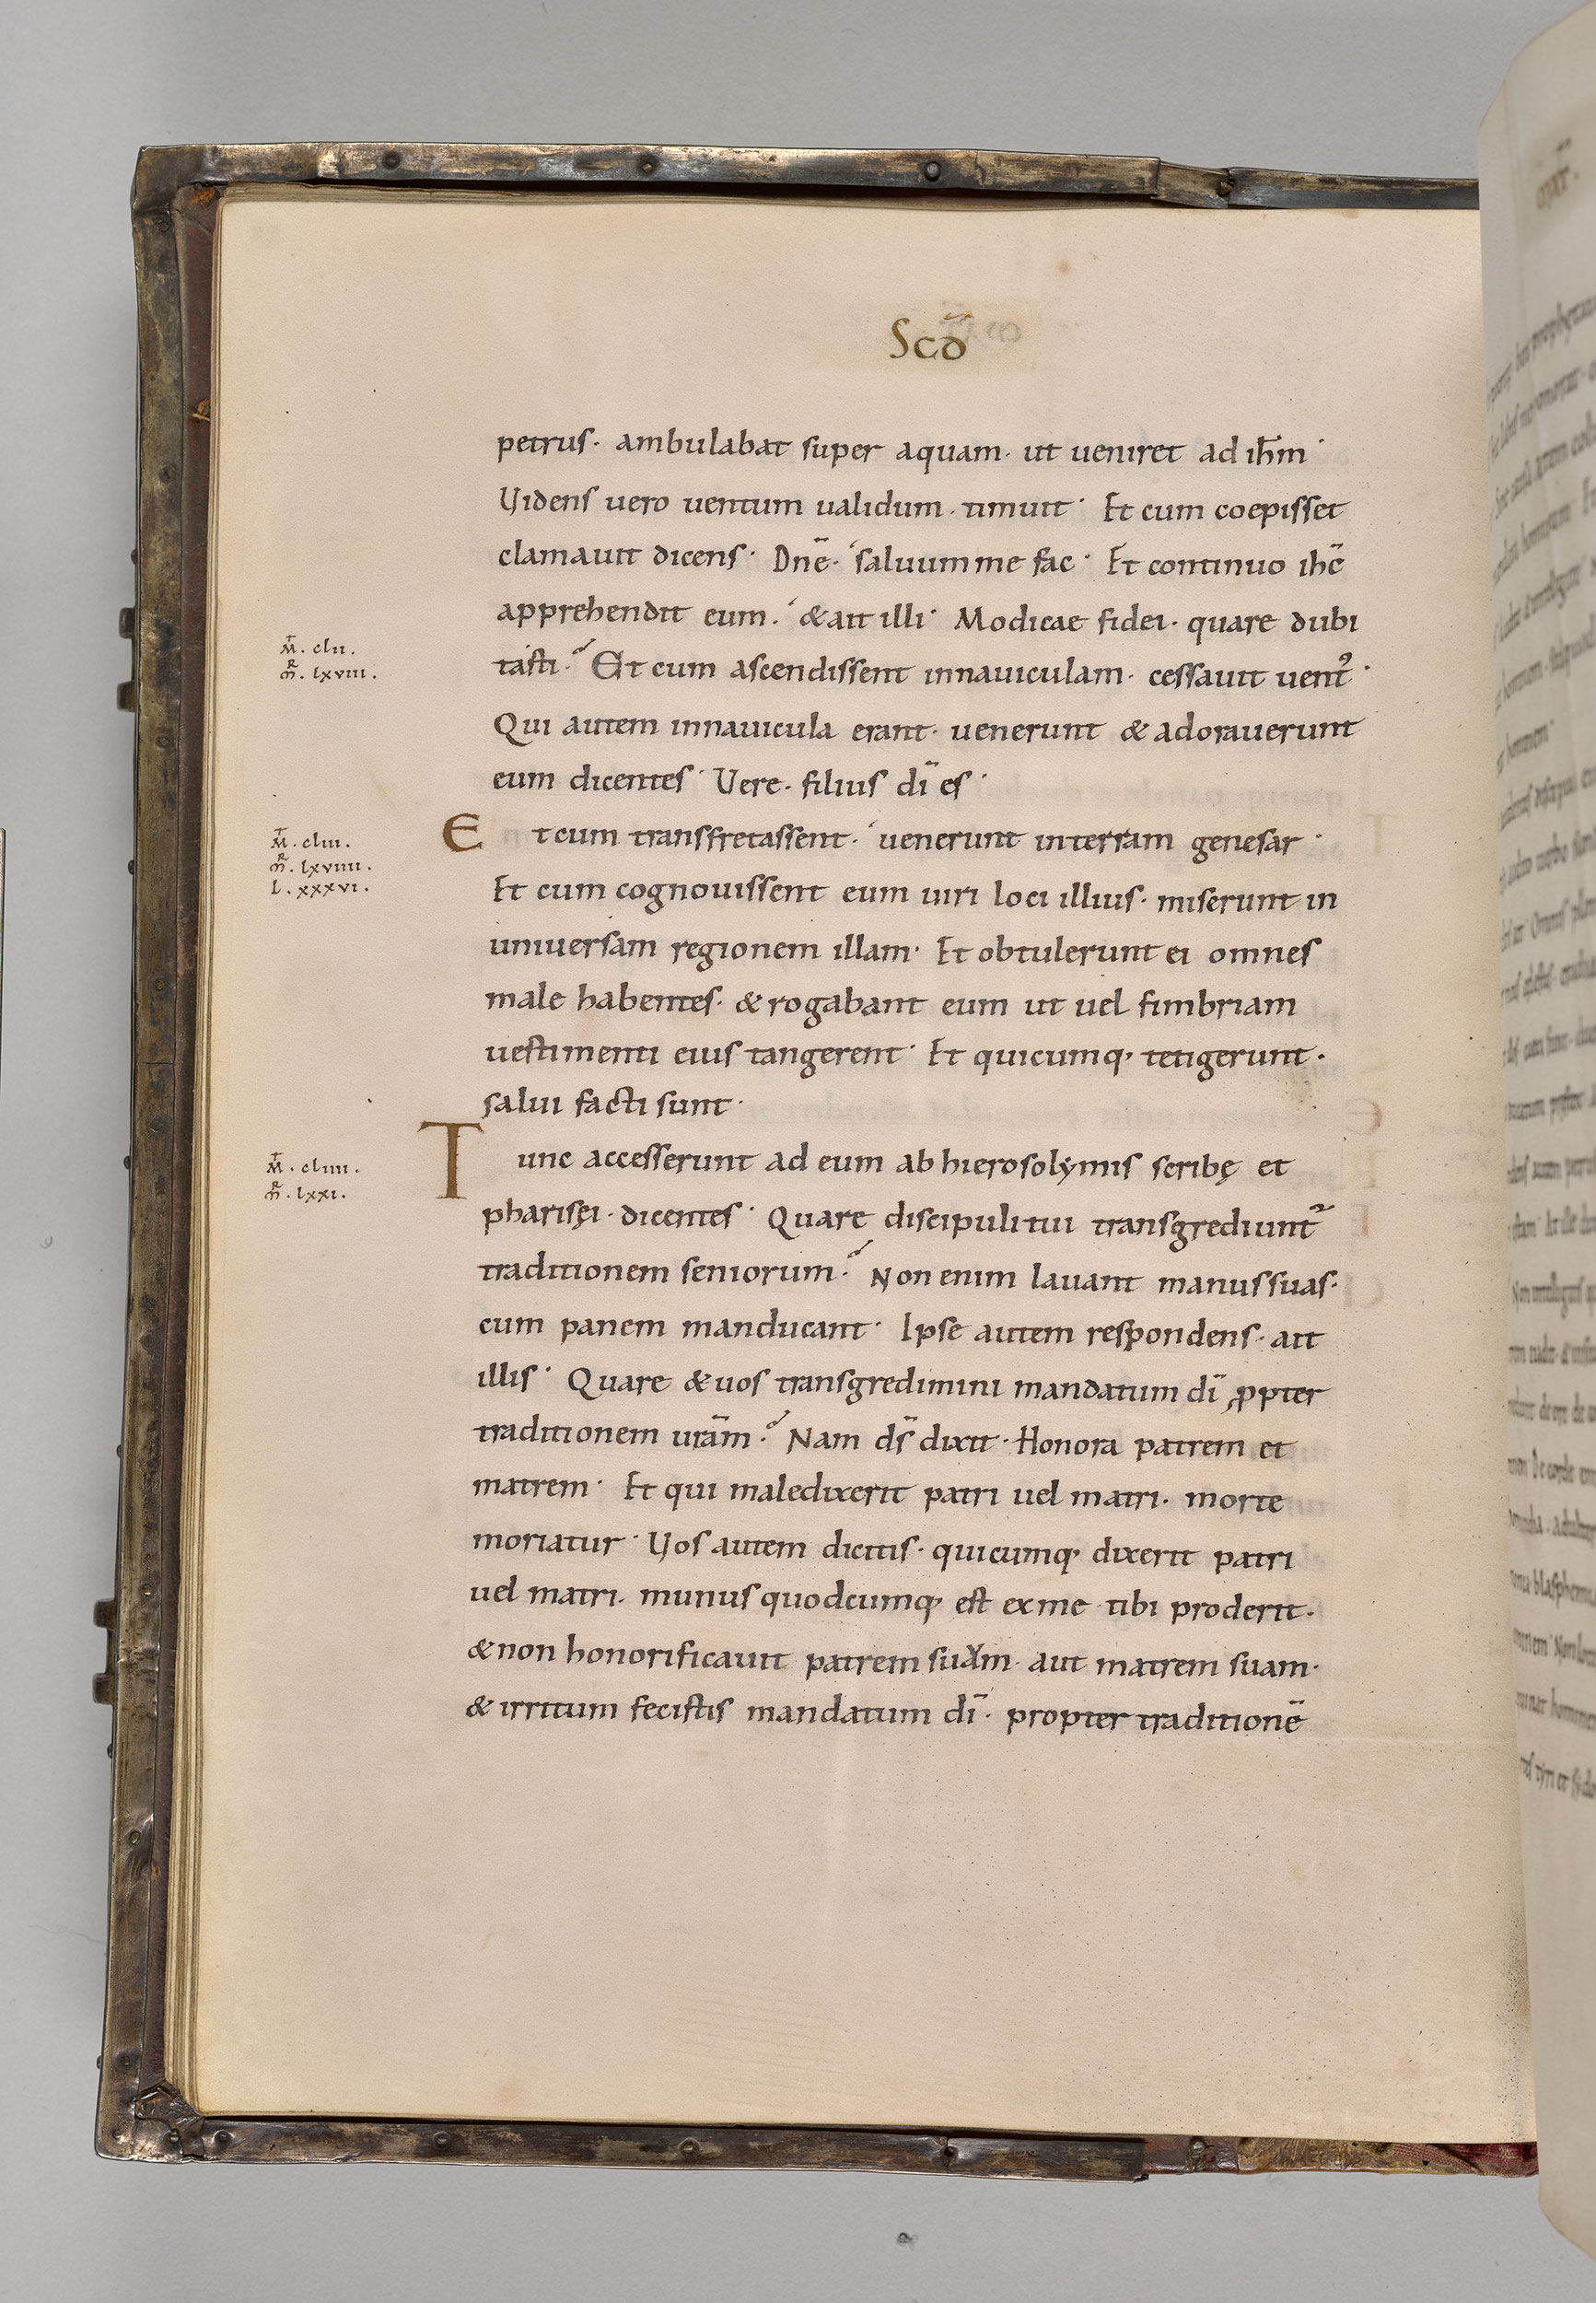 Scd̄
petrus· ambulabat super aquam· ut ueniret ad ih̄m·
Uidens uero uentum ualidum· timuit· Et cum coepisset
clamauit dicens· Dn̄e· saluum me fac· Et continuo ih̄c
apprehendit eum· &ait illi· Modicae fidei· quare dubi
M̄. clii.
tasti· Et cum ascendissent innauiculam· cessauit uentꝰ·
m̄R. lxviii.
Qui autem innauicula erant· uenerunt & adorauerunt
eum dicentes· Vere· filius dī es·
M̄. cliii.
Et cum transfretassent· uenerunt interram genesar·
m̄R. lxviiii.
L. xxxvi.
Et cum cognouissent eum uiri loci illius· miserunt in
uniuersam regionem illam· Et obtulerunt ei omnes
male habentes· & rogabant eum ut uel fimbriam
uestimenti eius tangerent· Et quicumq· tetigerunt·
salui facti sunt·
M̄. cliiii.
Tunc accesserunt ad eum ab hierosolymis scribę et
m̄R. lxxi.
pharisęi· dicentes· Quare discipuli tui transgrediunt᷑
traditionem seniorum· Non enim lauant manus suas·
cum panem manducant· Ipse autem respondens· ait
illis· Quare &uos transgredimini mandatum dī ꝓpter
traditionem ur̄am· Nam ds̄ dixit· Honora patrem et
matrem· Et qui maledixerit patri uel matri· morte
moriatur· Uos autem dicitis· quicumq· dixerit patri
uel matri· munus quodcumq· est ex me tibi proderit·
&non honorificauit patrem suum· aut matrem suam·
& irritum fecistis mandatum dī· propter traditionē